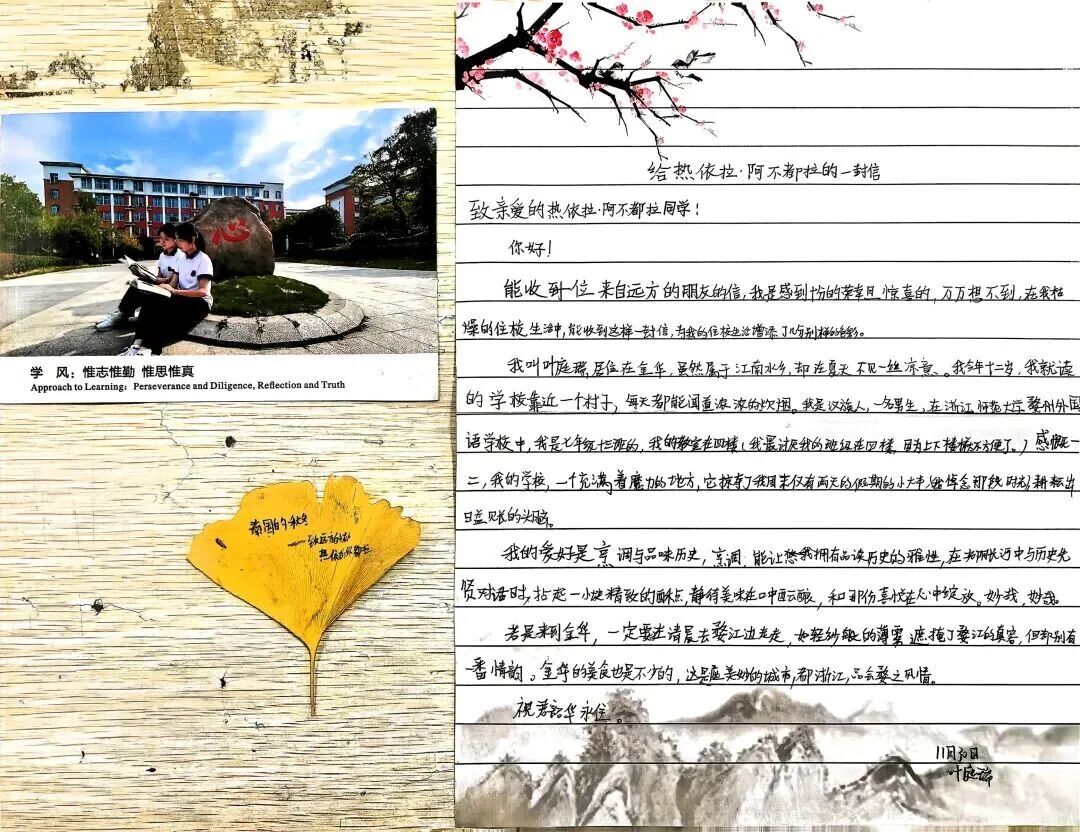 学 风：惟志惟勤 惟思惟真
Approach to Learning: Perseverance and Diligence, Reflection and Truth
泰国的秋冬
给热依拉·阿不都拉的一封信
致亲爱的热依拉·阿不都拉同学！
你好！
能收到一位来自远方的朋友的信，我是感到十份的荣幸且惊喜的，万万想不到，在我枯
燥的住校生活中，能收到这样一封信，为我的住校生活增添了几分别样的色彩。
我叫叶庭瑞，居住在金华，虽然属于江南水乡，却在夏天不见一丝凉意。我今年十二岁，我就读
的学校靠近一个村子，每天都能闻道浓浓的炊烟。我是汉族人，一名男生，在浙江师范大学婺州外国
语学校中，我是七年级十三班的，我的教室在四楼（我最讨厌我的班级在四楼，因为上下楼梯不方便了。）感慨一
二，我的学校，一个充满着魔力的地方，它掠夺了我周末仅有两天的假期的小大半
日益见长的头脑。
我的爱好是烹调与品味历史，烹调，能让我拥有品读历史的雅性，在
贤对话时，拈起一小块精致的酥点，静待美味在口中酝酿，和那份喜悦在心中绽放。妙哉，妙哉
若是来到金华，一定要在清晨去婺江边走走，如轻纱般的薄雾遮掩了婺江的真容，但却别有
一番情韵。金华的美食也是不少的，这是座美妙的城市，都浙江，品会婺之风情。
祝君韶华永住。
11月30日
叶庭瑞